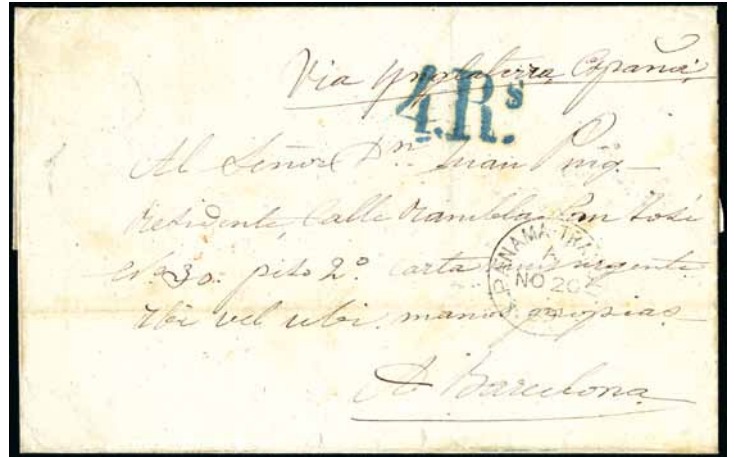 Via Ynglaterra España
4.Rs.
Al Señor Dn. Juan Puig
Residente, Calle Rambla San José
No. 30. piso 2º carta muy urgente
PANAMA-TRA
A
NO 20
Ubi vel ubi. manos propias
A Barcelona